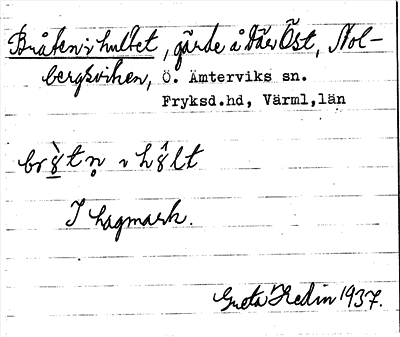 Bråten i hultet, gärde å Där Öst, Nol-
bergsviken, Ö. Ämterviks sn.
Fryksd.hd, Värml,län
I hagmark.
Greta Hedin 1937.